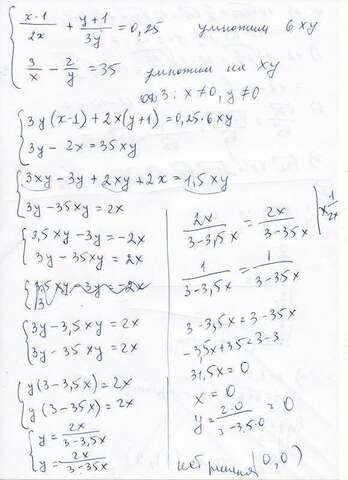 (x-1)/2x + (y+1)/3y = 0,25 умножим 6xy
3/x - 2/y = 35 умножим на xy
ОДЗ: x ≠ 0, y ≠ 0
3y(x-1) + 2x(y+1) = 0,25·6xy
3y - 2x = 35xy
3xy - 3y + 2xy + 2x = 1,5xy
3y - 35xy = 2x
3,5xy - 3y = -2x
3y - 35xy = 2x
3,5xy - 3y = -2x
3
3y - 3,5xy = 2x
3y - 35xy = 2x
y(3 - 3,5x) = 2x
y(3 - 35x) = 2x
y = 2x/(3 - 3,5x)
y = 2x/(3 - 35x)
2x/(3 - 3,5x) = 2x/(3 - 35x) | × 1/2x
1/(3 - 3,5x) = 1/(3 - 35x)
3 - 3,5x = 3 - 35x
-3,5x + 35x = 3 - 3
31,5x = 0
x = 0
y = 2·0/(3 - 3,5·0) = 0
нет решения (0,0)